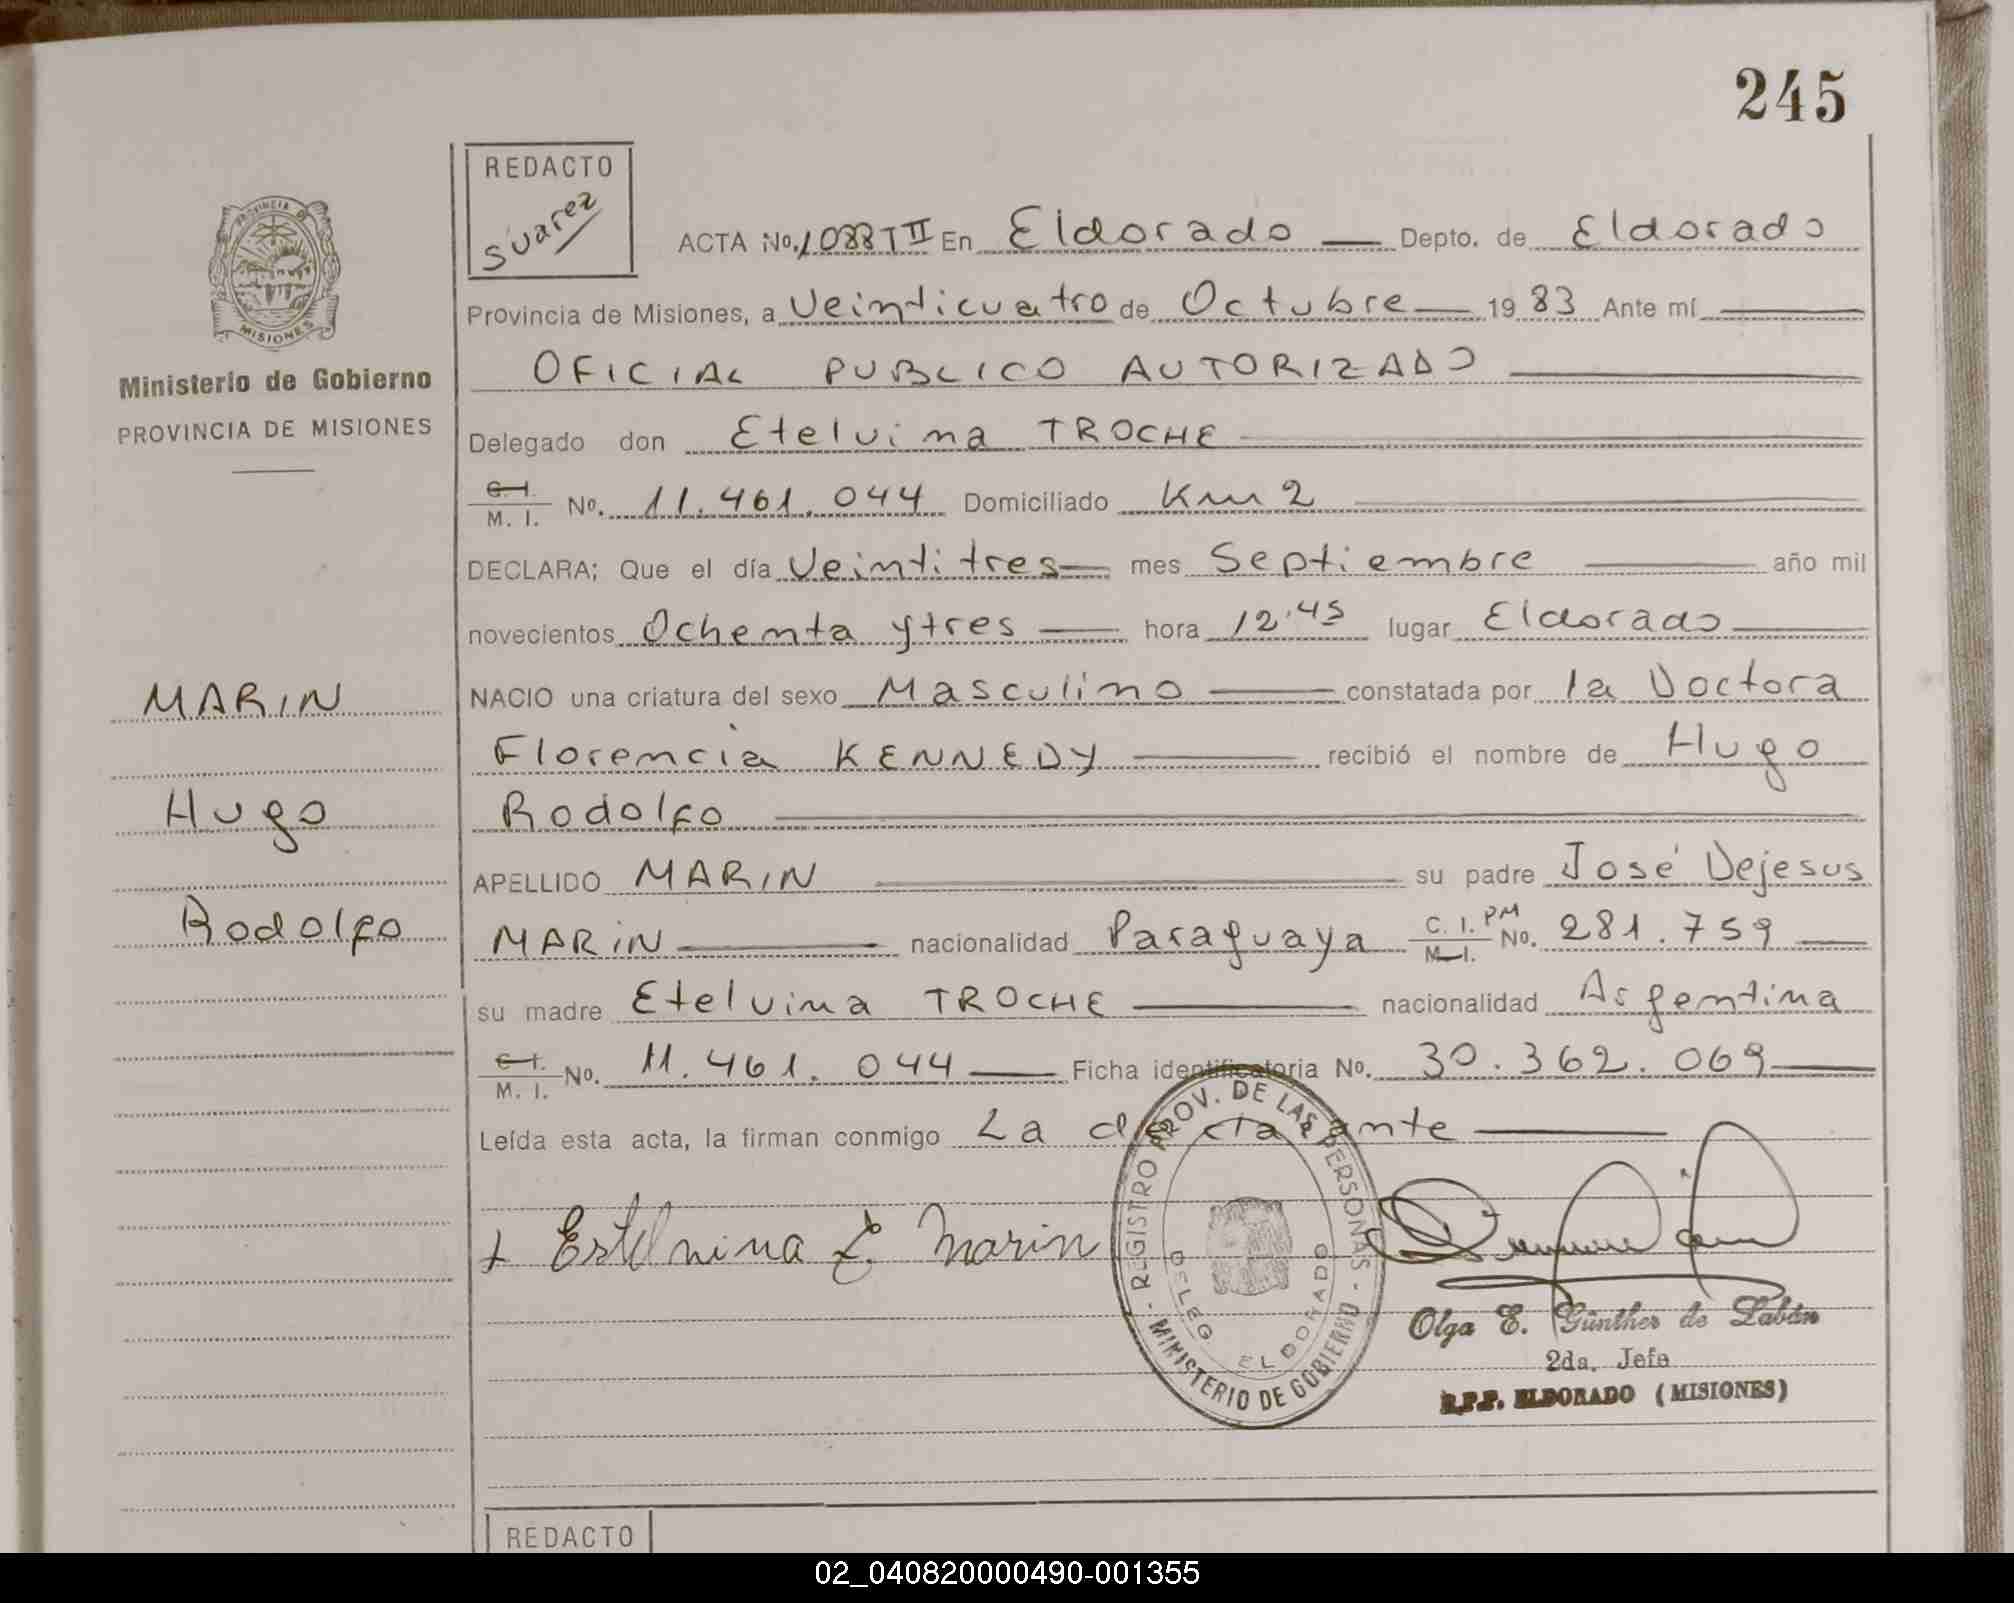 245
REDACTO
Suarez
PROVINCIA DE
MISIONES
Ministerio de Gobierno
PROVINCIA DE MISIONES
ACTA No. 1088 T II En Eldorado Depto. de Eldorado
Provincia de Misiones, a Veinticuatro de Octubre 1983 Ante mí
OFICIAL PUBLICO AUTORIZADO
Delegado don Etelvina TROCHE
C. I. M. I. No. 11.461.044 Domiciliado Km 2
DECLARA; Que el día Veintitres mes Septiembre año mil
novecientos Ochenta y tres hora 12.45 lugar Eldorado
MARIN
NACIO una criatura del sexo Masculino constatada por la Doctora
Florencia KENNEDY recibió el nombre de Hugo
Hugo
Rodolfo
APELLIDO MARIN su padre José Dejesus
Rodolfo
MARIN nacionalidad Paraguaya C. I. PM M. I. No. 281.759
su madre Etelvina TROCHE nacionalidad Argentina
C. I. M. I. No. 11.461.044 Ficha identificatoria No. 30.362.069
Leída esta acta, la firman conmigo La declarante
+ Estelvina E. Marin
REGISTRO PROV. DE LAS PERSONAS
MINISTERIO DE GOBIERNO
DELEG ELDORADO
Olga E. Günther de Labán
2da. Jefe
R.P.P. ELDORADO (MISIONES)
REDACTO
02_040820000490-001355